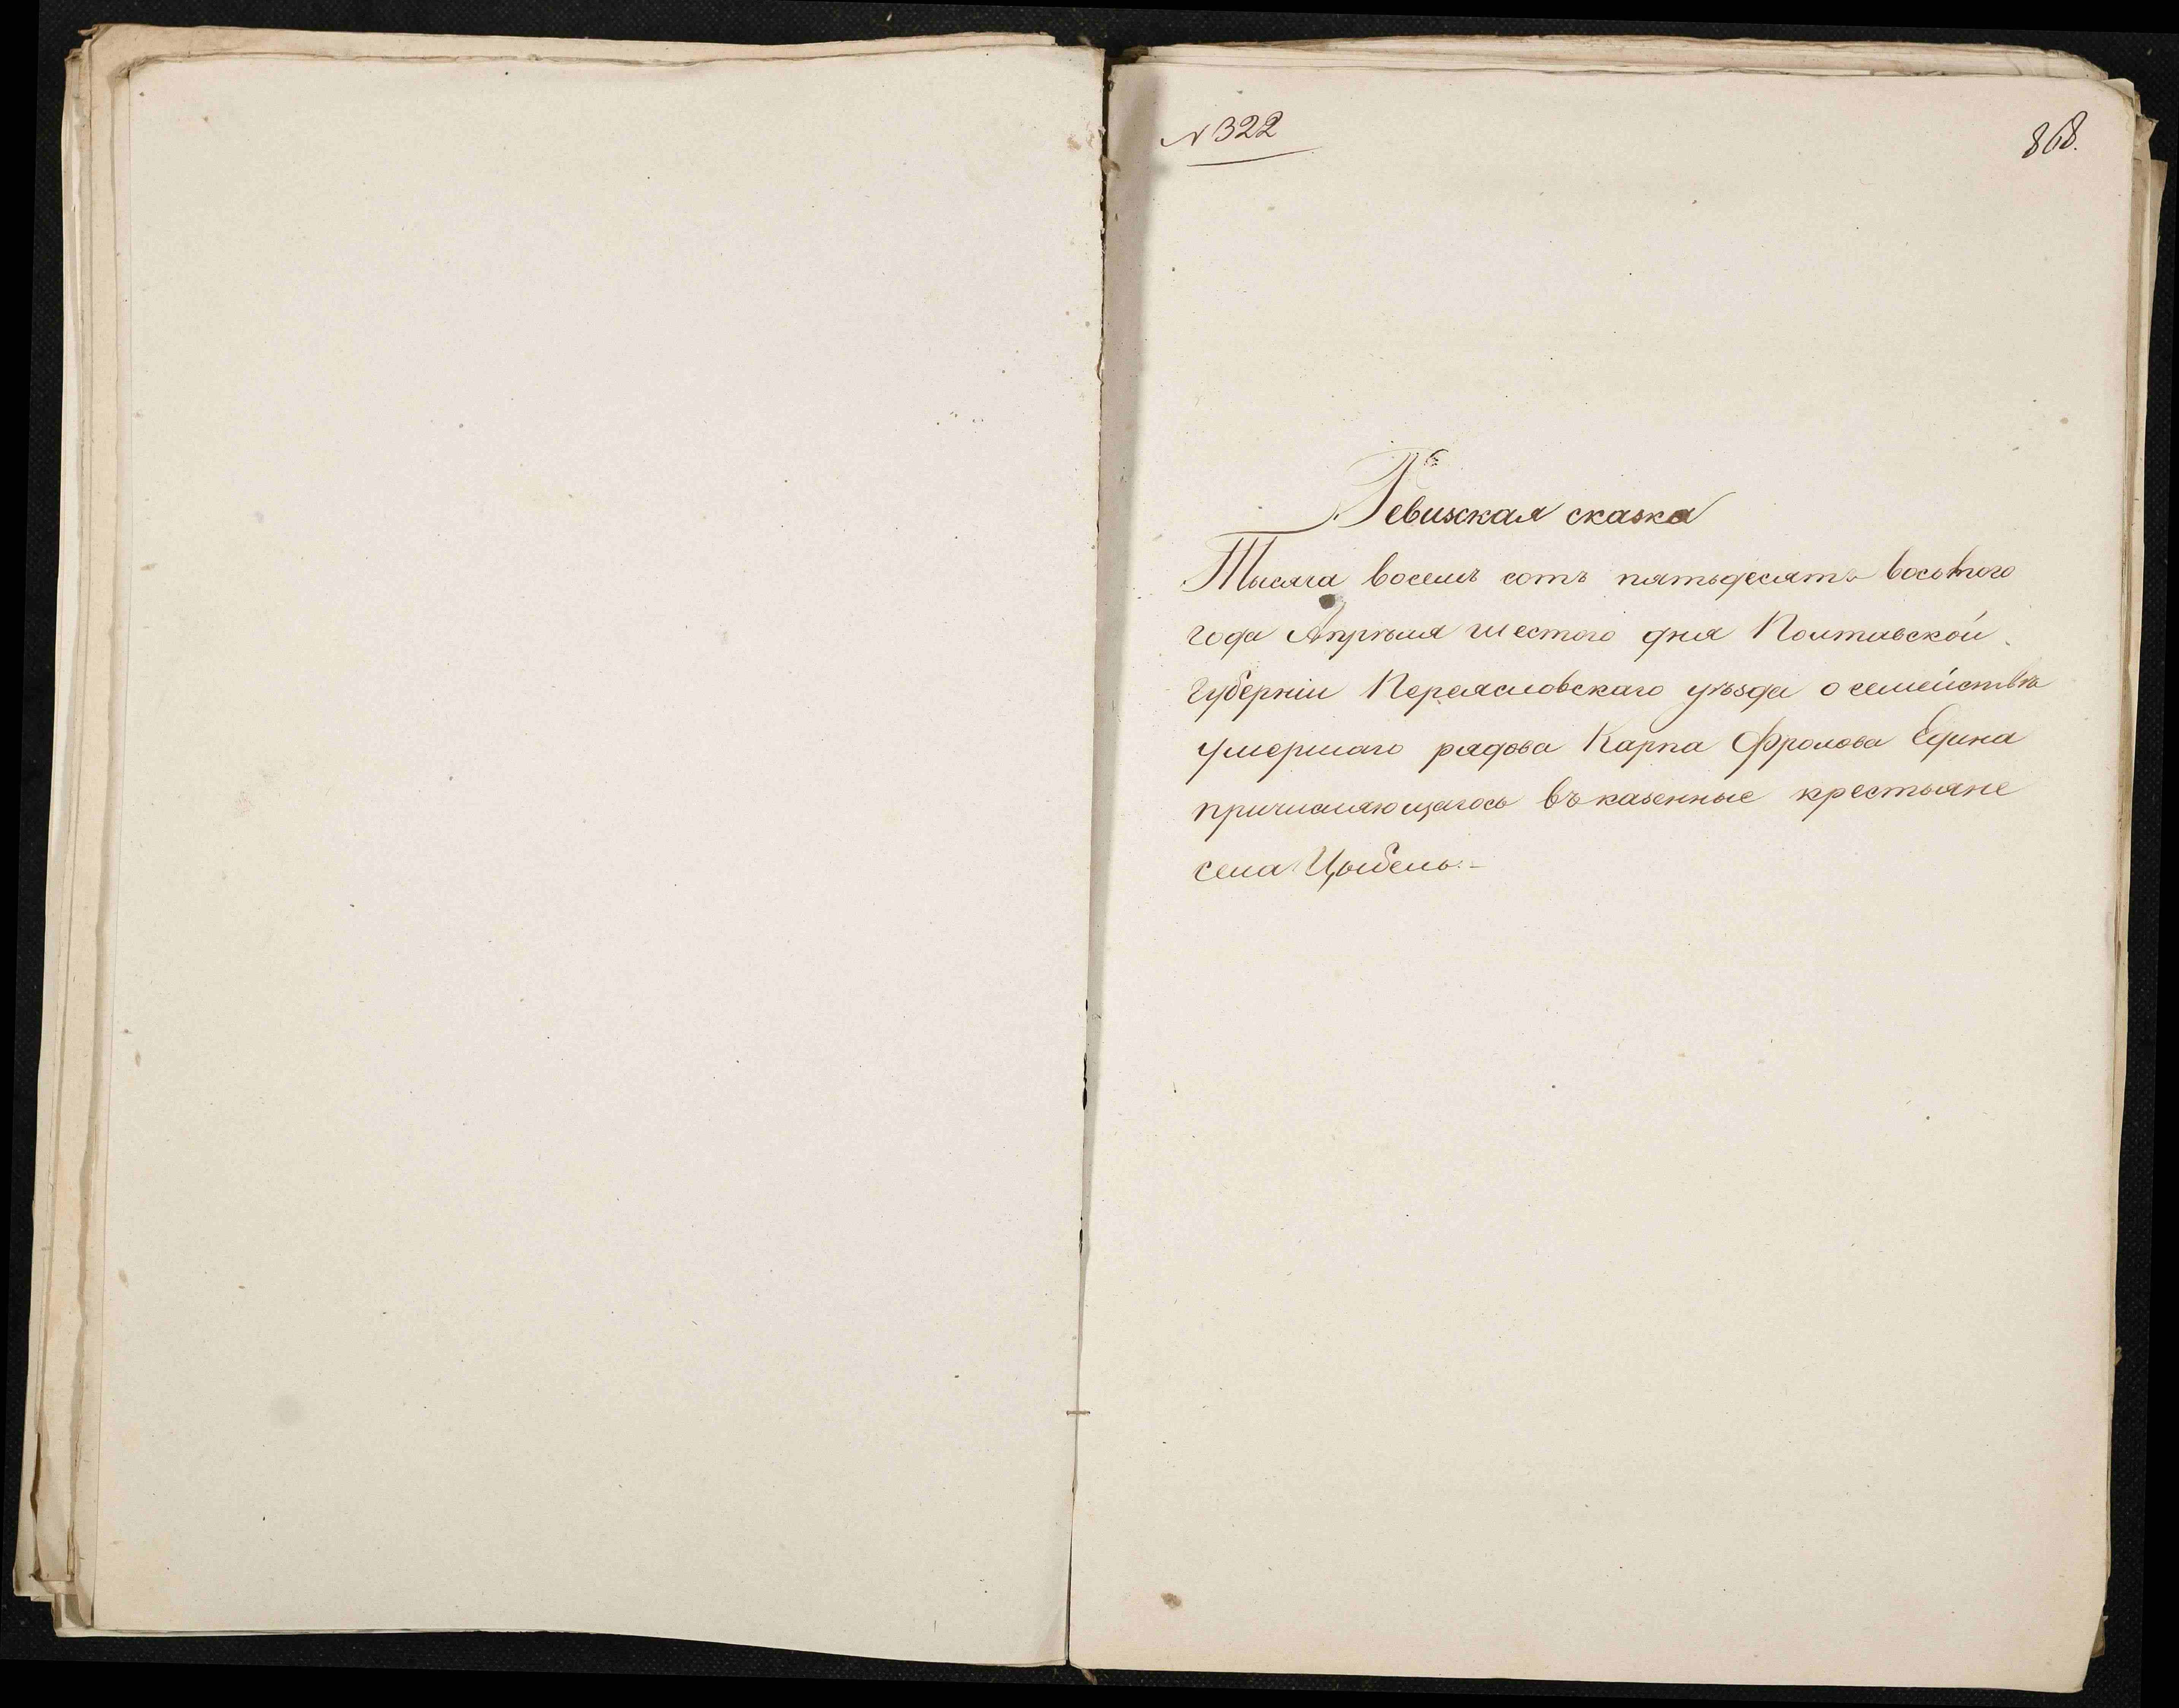 № 322
868.
Ревизская сказка
Тысяча восемъ сотъ пятьдесятъ восьмого
года Апрѣля шестого дня Полтавской
Губерніи Переясловскаго уѣзда о семействѣ
умершаго рядова Карпа Фролова Едина
причисляющагось въ казенные крестьяне
села Цыбель.-